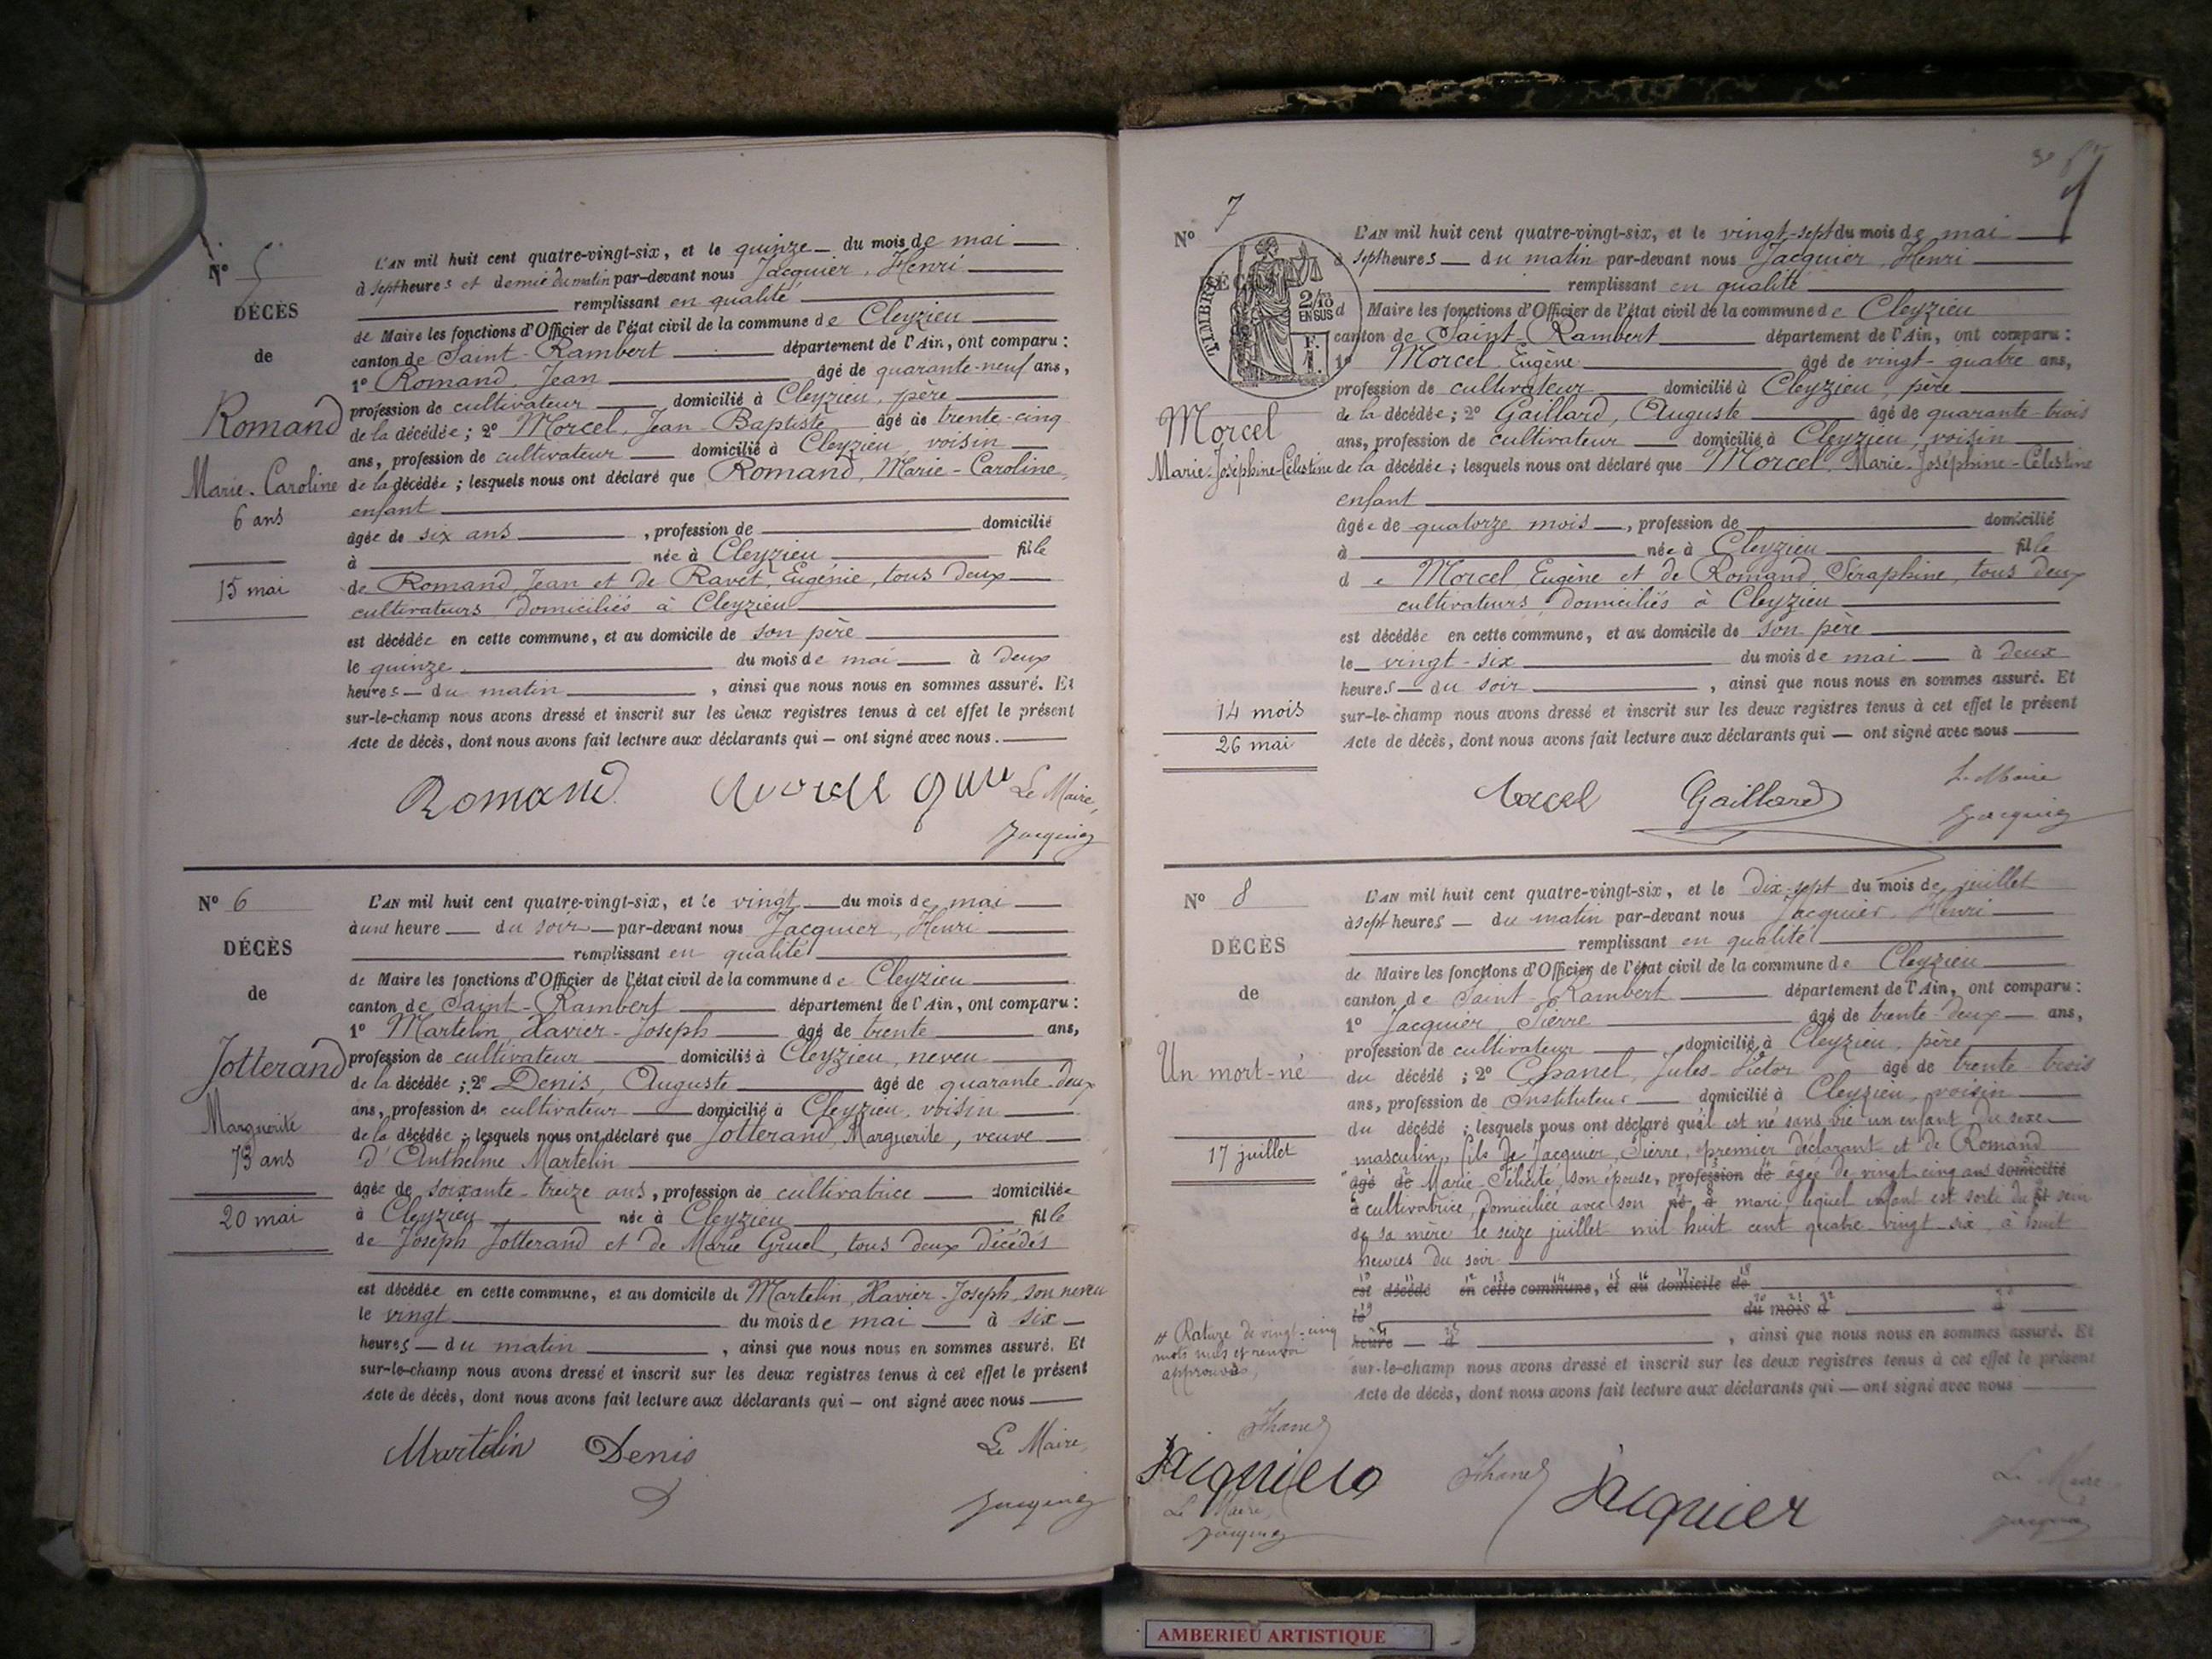 Nº 5
DÉCÈS
de
Romand
Marie-Caroline
6 ans
15 mai
L'AN mil huit cent quatre-vingt-six, et le quinze du mois de mai
à sept heures et demie du matin par-devant nous Jacquier, Henri
remplissant en qualité
de Maire les fonctions d'Officier de l'état civil de la commune de Cleyzieu
canton de Saint-Rambert département de l'Ain, ont comparu :
1º Romand, Jean âgé de quarante-neuf ans,
profession de cultivateur domicilié à Cleyzieu, père
de la décédée ; 2º Morcel, Jean-Baptiste âgé de trente-cinq
ans, profession de cultivateur domicilié à Cleyzieu, voisin
de la décédée ; lesquels nous ont déclaré que Romand, Marie-Caroline,
enfant
âgée de six ans , profession de domicilié
à née à Cleyzieu fille
de Romand, Jean et de Ravet, Eugénie, tous deux
cultivateurs domiciliés à Cleyzieu
est décédée en cette commune, et au domicile de son père
le quinze du mois de mai à deux
heures du matin , ainsi que nous nous en sommes assuré. Et
sur-le-champ nous avons dressé et inscrit sur les deux registres tenus à cet effet le présent
Acte de décès, dont nous avons fait lecture aux déclarants qui — ont signé avec nous.
Romand Le Maire,
Jacquier
Nº 6
DÉCÈS
de
Jotterand
Marguerite
73 ans
20 mai
L'AN mil huit cent quatre-vingt-six, et le vingt du mois de mai
à une heure du soir par-devant nous Jacquier, Henri
remplissant en qualité
de Maire les fonctions d'Officier de l'état civil de la commune de Cleyzieu
canton de Saint-Rambert département de l'Ain, ont comparu :
1º Martelin, Xavier-Joseph âgé de trente ans,
profession de cultivateur domicilié à Cleyzieu, neveu
de la décédée ; 2º Denis, Auguste âgé de quarante-deux
ans, profession de cultivateur domicilié à Cleyzieu, voisin
de la décédée ; lesquels nous ont déclaré que Jotterand, Marguerite, veuve
d'Anthelme Martelin
âgée de soixante-treize ans, profession de cultivatrice domiciliée
à Cleyzieu née à Cleyzieu fille
de Joseph Jotterand et de Marie Gruel, tous deux décédés
est décédée en cette commune, et au domicile de Martelin, Xavier-Joseph, son neveu
le vingt du mois de mai à six
heures du matin , ainsi que nous nous en sommes assuré. Et
sur-le-champ nous avons dressé et inscrit sur les deux registres tenus à cet effet le présent
Acte de décès, dont nous avons fait lecture aux déclarants qui — ont signé avec nous
Martelin Denis Le Maire,
Jacquier
Nº 7
DÉCÈS
TIMBRE
2/10
EN SUS
F.
1
Morcel
Marie-Joséphine-Célestine
14 mois
26 mai
L'AN mil huit cent quatre-vingt-six, et le vingt-sept du mois de mai
à sept heures du matin par-devant nous Jacquier, Henri
remplissant en qualité
d Maire les fonctions d'Officier de l'état civil de la commune de Cleyzieu
canton de Saint-Rambert département de l'Ain, ont comparu :
1º Morcel, Eugène âgé de vingt-quatre ans,
profession de cultivateur domicilié à Cleyzieu, père
de la décédée ; 2º Gaillard, Auguste âgé de quarante-trois
ans, profession de cultivateur domicilié à Cleyzieu, voisin
de la décédée ; lesquels nous ont déclaré que Morcel, Marie-Joséphine-Célestine
enfant
âgée de quatorze mois , profession de domicilié
à née à Cleyzieu fille
de Morcel, Eugène et de Romand, Séraphine, tous deux
cultivateurs domiciliés à Cleyzieu
est décédée en cette commune, et au domicile de son père
le vingt-six du mois de mai à deux
heures du soir , ainsi que nous nous en sommes assuré. Et
sur-le-champ nous avons dressé et inscrit sur les deux registres tenus à cet effet le présent
Acte de décès, dont nous avons fait lecture aux déclarants qui — ont signé avec nous
Morcel Gaillard Le Maire
Jacquier
Nº 8
DÉCÈS
de
Un mort-né
17 juillet
L'AN mil huit cent quatre-vingt-six, et le dix-sept du mois de juillet
à sept heures du matin par-devant nous Jacquier, Henri
remplissant en qualité
de Maire les fonctions d'Officier de l'état civil de la commune de Cleyzieu
canton de Saint-Rambert département de l'Ain, ont comparu :
1º Jacquier, Pierre âgé de trente-deux ans,
profession de cultivateur domicilié à Cleyzieu, père
du décédé ; 2º Jules-Victor âgé de trente-trois
ans, profession de Instituteur domicilié à Cleyzieu, voisin
du décédé ; lesquels nous ont déclaré qu'il est né sans vie un enfant du sexe
masculin, fils de Jacquier, Pierre, premier déclarant et de Romand
âgé de Marie-Félicité, son épouse, profession de âgée de vingt-cinq ans domicilié
à cultivatrice, domiciliée avec son né à mari, lequel enfant est sorti du fil sein
de sa mère le seize juillet mil huit cent quatre-vingt-six, à huit
heures du soir
est décédé en cette commune, et au domicile de
le du mois d à
heure d , ainsi que nous nous en sommes assuré. Et
sur-le-champ nous avons dressé et inscrit sur les deux registres tenus à cet effet le présent
Acte de décès, dont nous avons fait lecture aux déclarants qui — ont signé avec nous
Rature de vingt-cinq
mots nuls et renvoi
approuvés,
Jacquier
Le Maire,
Jacquier
Jacquier
Le Maire
Jacquier
AMBERIEU ARTISTIQUE